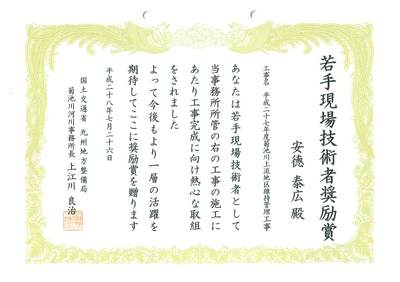 若手現場技術者奨励賞
安德 泰広 殿
工事名 平成二十七年度菊池川上流地区維持管理工事
あなたは若手現場技術者として
当事務所所管の右の工事の施工に
あたり工事完成に向け熱心な取組
をされました
よって今後もより一層の活躍を
期待してここに奨励賞を贈ります
平成二十八年七月二十六日
国土交通省 九州地方整備局
菊池川河川事務所長 上江川 良治